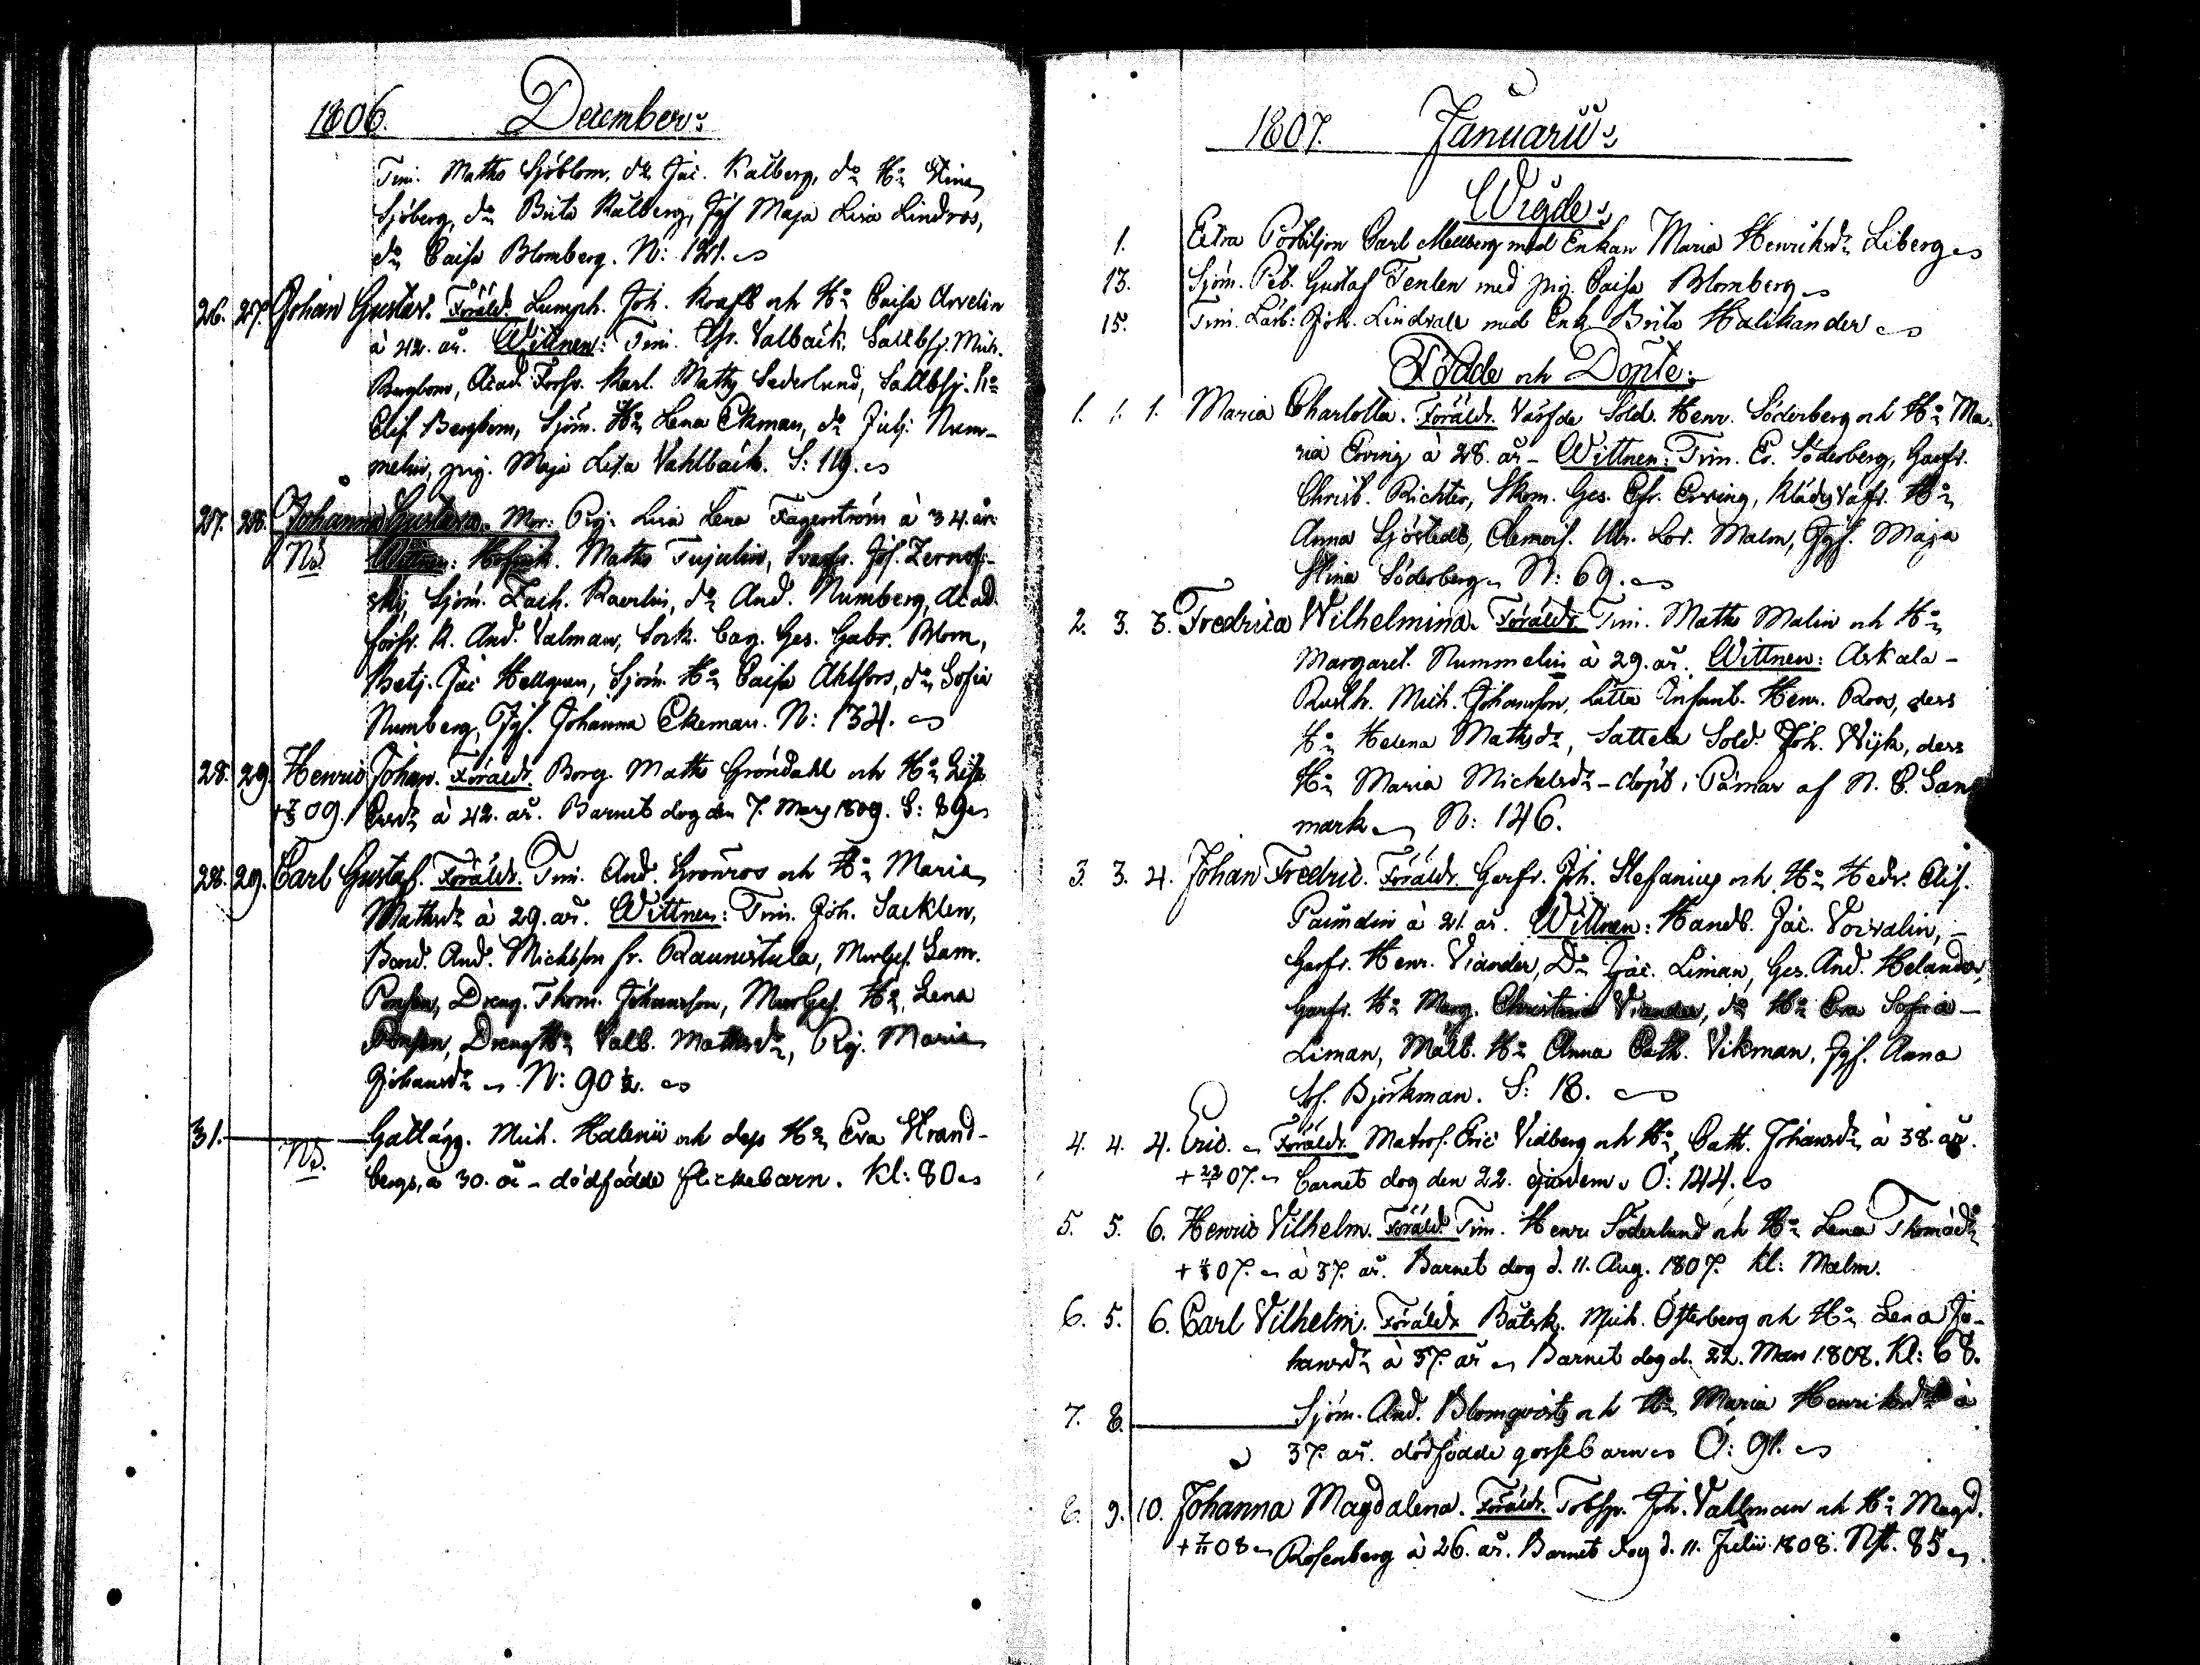 1806. December.
Tim. Matts Sjöblom, do Jac. Kålberg, do Ha Stina
Sjöberg, do Brita Kålberg, Jgf Maja Lisa Lindros,
do Caisa Blomberg. N: 121.
26. 27. Johan Gustav. Föräldr. Lumph. Joh. Kraft och Ha Caisa Arvelin
à 42. år. Wittnen: Tim. Valbäck, Sallbsj. Mich.
Bergbom, Acad. Forsv. Karl. Matts Sederlund, Sallbsj. Ha
Elis. Bergbom, Sjöm. Ha Lena Ekman, do Num-
melin, pig. Maja Lisa Vahlbäck. S: 119.
27. 28. Johanna Gustava. Mor: Pig. Lisa Lena Fagerström à 34. år.
Nd. Wittnen: Matts Tujulin, Jos. Zernof-
skij, Sjöm. Zach. Kaerlin, do And. Numberg, Acad.
forsv. K. And. Valman, Sock. Bag. Ges. Gabr. Blom,
Betj. Jac Hellgren, Sjöm. Ha Caisa Åhlfors, do Sofia
Numberg, Jgf. Johanna Ekeman. N: 134.
28. 29. Henric Johan. Föräldr. Borg. Matts Gröndahl och Ha Lisa
+ 7/3 09. Ersdr à 42. år. Barnet dog den 7. Mars 1809. S: 89
28. 29. Carl Gustaf. Föräldr. Tim. And. Grönros och Ha Maria
Mattsdr à 29. år. Wittnen: Tim. Joh. Sacklen,
Bond. And. Michlsson fr. Raunistula, MurGes. Sam.
Ponsen, Dreng. Thom. Johansson, MurGes. Ha Lena
Ponsen, Dreng Ha Valb. Mattsdr, Pig. Maria
Johansdr N: 90 1/2.
31. Nd. Gatlägg. Mich. Halenii och dess Ha Eva Strand-
bergs, à 30. år - dödfödde flickebarn. Kl: 80
1807. Januarius
Wigde
1. Extra Postiljon Carl Mellberg med Enkan Maria Henriksdr Liberg
13. Sjöm. Pet. Gustaf Tenlen med pig. Caisa Blomberg
15. Tim. Lärb: Joh. Lindvall med Enk. Brita Halikander
Födde och Döpte.
1. 1. 1. Maria Charlotta. Föräldr. Varfde Sold. Henr. Söderberg och Ha Ma-
ria Erving à 28. år - Wittnen: Tim. Er. Söderberg, Garfv.
Christ. Richter, Skom. Ges. Efr. Erving, KlädesVäfv. Ha
Anna Sjöstedt, Lov. Malm, Jgf. Maja
Stina Söderberg N: 69.
2. 3. 3. Fredrica Wilhelmina. Föräldr. Tim. Matts Malin och Ha
Margaret. Nummelin à 29. år. Wittnen: Askala-
Rusth. Mich. Johansson, Lätta Infant. Henr. Roos, dess
Ha Helena Mattsdr, Sattela Sold. Joh. Wijk, dess
Ha Maria Michelsdr - döpt i Pämar af N. C. San
mark N: 146.
3. 3. 4. Johan Fredric. Föräldr. Garfv. Joh. Stefanius och Ha Hedv. Elis.
Paimdin à 21. år. Wittnen: Handl. Jac. Voivalin,
Garfv. Henr. Viander, Do Jac. Liman, Ges. And. Helander,
Garfv. Ha Marg. Christina Viander, do Ha Eva Sofia
Liman, Målb. Ha Anna Cath. Vikman, Jgf. Anna
Sof. Björkman. S: 18.
4. 4. 4. Eric. Föräldr. Matros. Eric Vidberg och Ha Cath. Johansdr à 38. år.
+ 22/1 07. Barnet dog den 22. ejusdem. Ö: 144.
5. 5. 6. Henric Vilhelm. Föräldr. Tim. Henr. Söderlund och Ha Lena Thomædr
+ 11/8 07. à 37. år. Barnet dog d. 11. Aug. 1807. Kl: Malm.
6. 5. 6. Carl Vilhelm. Föräldr. Båtzk. Mich. Österberg och Ha Lena Jo-
hansdr à 37. år Barnet dog d. 22. Mars 1808. Kl: 68.
7. 8. Sjöm. And. Blomqvists och Ha Maria Henriksdr à
37. år. dödfödde gossebarn Ö: 91.
8. 9. 10. Johanna Magdalena. Föräldr. Tobsp. Joh. Vallman och Ha Magd.
+ 11/7 08 Rosenberg à 26. år. Barnet dog d. 11. Julii 1808. Nst. 85